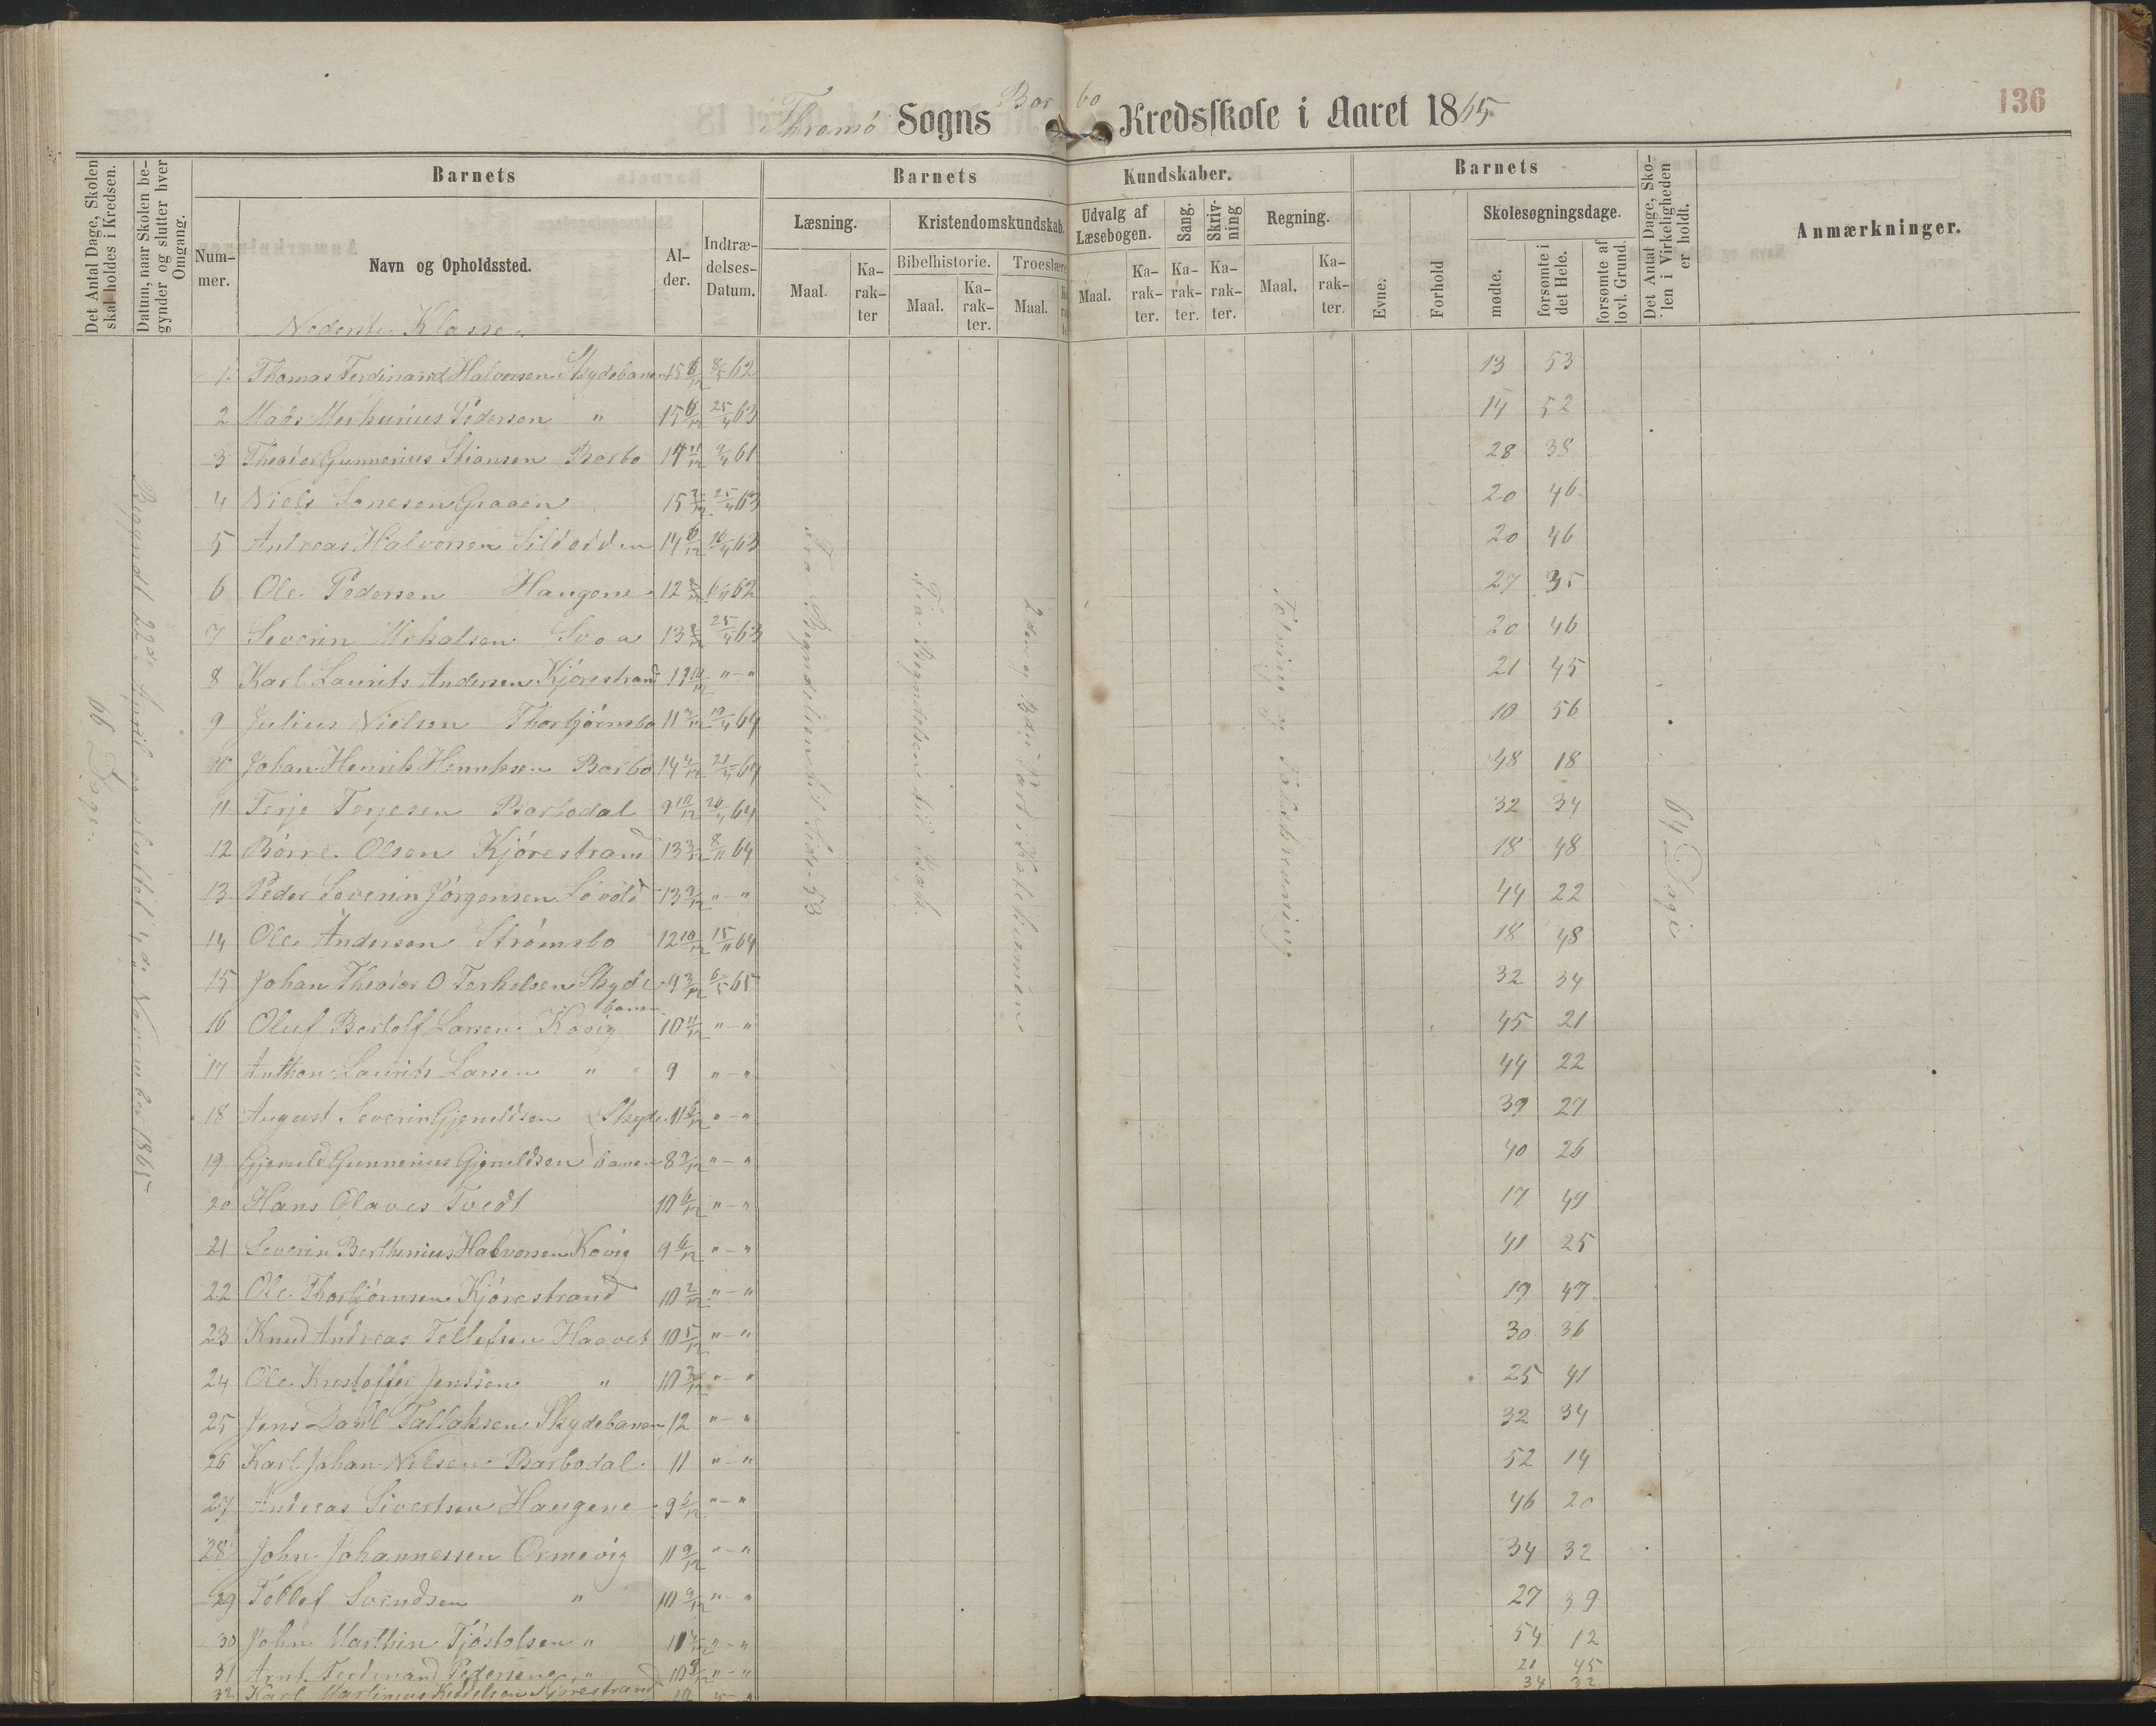 136
Thromö Sogns Barbo Kredsskole i Aaret 1865
Det Antal Dage, Skolen skal holdes i Kredsen.
Datum, naar Skolen begynder og slutter hver Omgang.
Barnets
Nummer.
Navn og Opholdssted.
Alder.
Indtrædelses-Datum.
Barnets Kundskaber.
Læsning.
Maal.
Karakter
Kristendomskundskab.
Bibelhistorie.
Maal.
Karakter.
Troeslære
Maal.
Udvalg af Læsebogen.
Maal.
Karakter.
Sang.
Karakter.
Skrivning
Karakter.
Regning.
Maal.
Karakter.
Barnets
Evne.
Forhold
Skolesøgningsdage.
mødte.
forsømte i det Hele.
forsømte af lovl. Grund.
Det Antal Dage, Skolen i Virkeligheden er holdt.
Anmærkninger.
Nederste Klasse
66 Dage
Begyndt 22de April og sluttet 4de November 1865
Fra Begyndelsen til Side 53
Fra Begyndelsen til
2den og 3die Part i Katekismen
64 Dage
1. Thomas Ferdinand Halvorsen Skydebanen 15 6/12 8/5 62 13 53
2 Mads Merkurius Pedersen " 15 6/12 25/4 63 14 52
3 Theodor Gunnerius Stiansen Barbo 14 11/12 61 28 38
4 Niels Sonesen Graaen 15 25/4 63 20 46
5 Andreas Halvorsen Sildodden 14 6/12 63 20 46
6 Ole Pedersen Haugene 12 6/11 62 27 35
7 Severin Mikalsen Svoa 13 25/4 63 20 46
8 Karl Laurits Andersen Kjörestrand 13 10/12 "-" 21 45
9 Julius Nielsen Thorbjörnsbo 11 19/4 64 10 56
10 Johan Henrik Henriksen Barbo 14 21/4 64 48 18
11 Terje Terjesen Barbodal 9 10/12 64 32 34
12 Börre Olsen Kjörestrand 13 3/12 8/11 64 18 48
13 Peder Severin Jörgensen Lövold 13 "-" 44 22
14 Ole Andersen Strömsbo 12 10/12 15/11 64 18 48
15 Johan Theodor O Terkelsen Skydebanen 9 3/12 6/5 65 32 34
16 Oluf Bertolf Larsen Kovig 10 11/12 "-" 45 21
17 Anthon Laurits Larsen " 9 "-" 44 22
18 August Severin Gjeruldsen Skyde 11 "-" 39 27
19 Gjeruld Gunnerius Gjeruldsen banen 8 "-" 40 26
20 Hans Olaves Tvedt 10 6/12 "-" 17 49
21 Severin Berthinius Halvorsen Kovig 9 6/12 "-" 41 25
22 Ole Thorbjörnsen Kjörestrand 10 2/12 "-" 19 47
23 Knud Andreas Tellefsen Haavet 10 5/12 "-" 30 36
24 Ole Kristoffer Jenssen " 10 3/12 "-" 25 41
25 Jens Dahl Tallaksen Skydebanen 12 "-" 32 34
26 Karl Johan Nilsen Barbodal 11 "-" 52 14
27 Andreas Sivertsen Haugene 9 6/12 "-" 46 20
28 John Johannessen Ormevig 11 9/12 "-" 34 32
29 Tellef Svendsen " 10 9/12 "-" 27 39
30 John Marthin Tjöstolsen " 11 "-" 54 12
31 Arnt Ferdinand Pedersen " 10 "-" 21 45
32 Karl Martinius Kiddelsen Kjörestrand 10 "-" 34 32